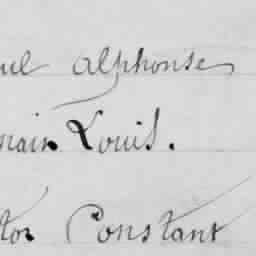 ul Alphonse
main Louis.
tor Constant